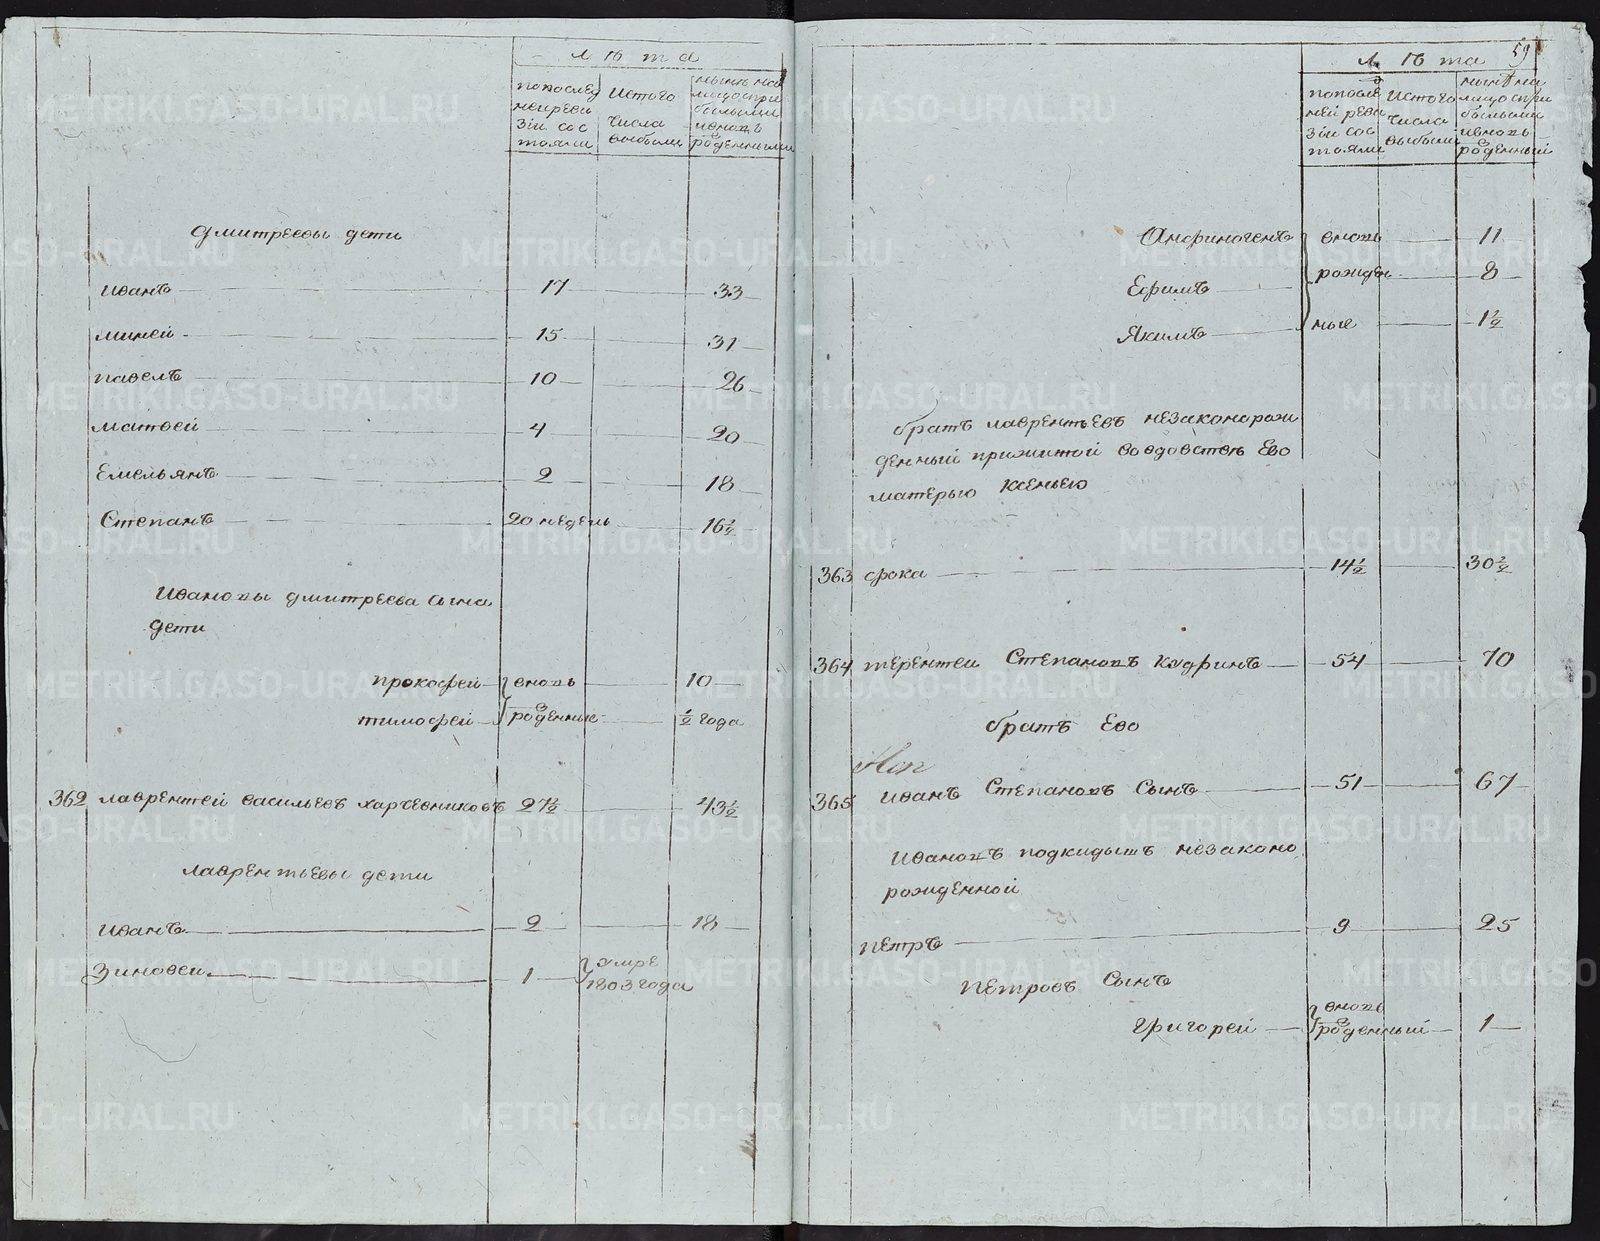 Лѣта
попослед
ней реви
зіи сос
тояли
Истого
числа
выбыли
ныне на
лицо спри
былыми
ивновь
рожденными
Дмитреевы дети
Иванъ 17 33
миней 15 31
павелъ 10 26
матвей 4 20
Емельянъ 2 18
Степанъ 20 недель 16½
Ивановы дмитреева сына
дети
прокофей вновь 10
тимофей рожденные ½ года
362 лаврентей васильевъ харчевниковъ 27½ 43½
лаврентьевы дети
иванъ 2 18
Зиновеи 1 умре
1803 года
59
Лѣта
попослѣд
ней реви
зіи сос
тояли
Истого
числа
выбыли
нынѣ на
лицо спри
былыми
ивновь
рожденный
Анфиногенъ вновь 11
Ефимъ рожден 8
Якимъ ные 1½
братъ лаврентьевъ незаконорож
денный прижитой вовдовствѣ Ево
матерью Ксеньею
363 фока 14½ 30½
364 терентеи Степановъ кудринъ 54 70
братъ Ево
365 иванъ Степановъ Сынъ 51 67
ивановъ подкидышъ незаконо
рожденной
петръ 9 25
петровъ Сынъ
григорей вновь
рожденный 1
METRIKI.GASO-URAL.RU